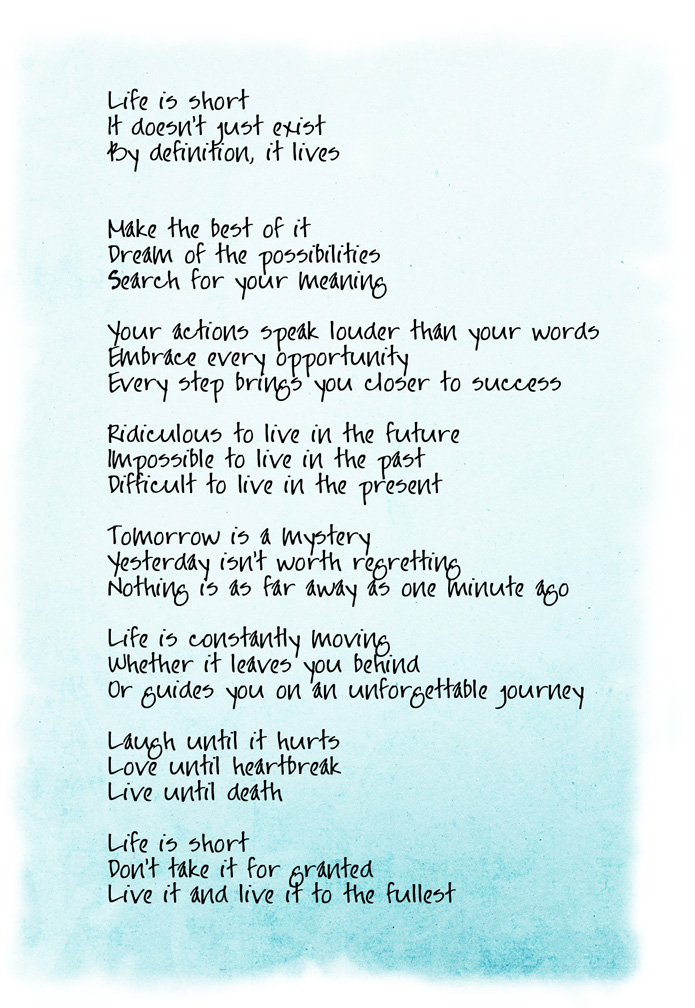 Life is short
It doesn't just exist
By definition, it lives
Make the best of it
Dream of the possibilities
Search for your meaning
Your actions speak louder than your words
Embrace every opportunity
Every step brings you closer to success
Ridiculous to live in the future
Impossible to live in the past
Difficult to live in the present
Tomorrow is a mystery
Yesterday isn't worth regretting
Nothing is as far away as one minute ago
Life is constantly moving
Whether it leaves you behind
Or guides you on an unforgettable journey
Laugh until it hurts
Love until heartbreak
Live until death
Life is short
Don't take it for granted
Live it and live it to the fullest